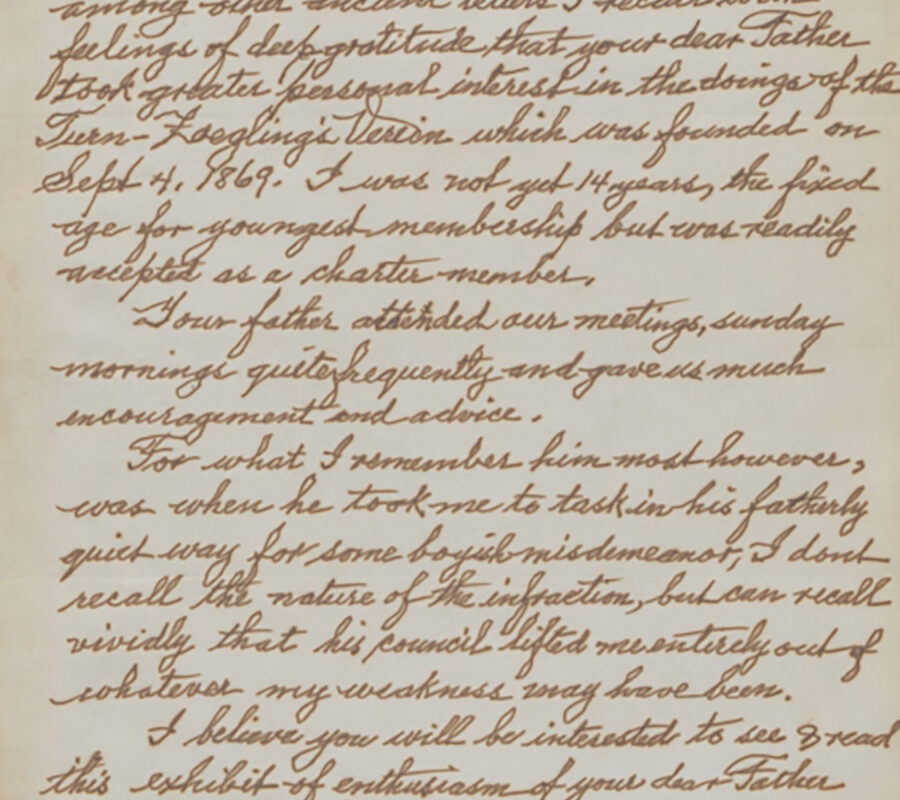 among other ancient letters I recall with
feelings of deep gratitude that your dear Father
took greater personal interest in the doings of the
Turn-Zoegling's Verein which was founded on
Sept 4, 1869. I was not yet 14 years, the fixed
age for youngest membership but was readily
accepted as a charter member.
Your father attended our meetings, sunday
mornings quite frequently and gave us much
encouragement and advice.
For what I remember him most however,
was when he took me to task in his fatherly
quiet way for some boyish misdemeanor, I dont
recall the nature of the infraction, but can recall
vividly that his council lifted me entirely out of
whatever my weakness may have been.
I believe you will be interested to see & read
this exhibit of enthusiasm of your dear Father